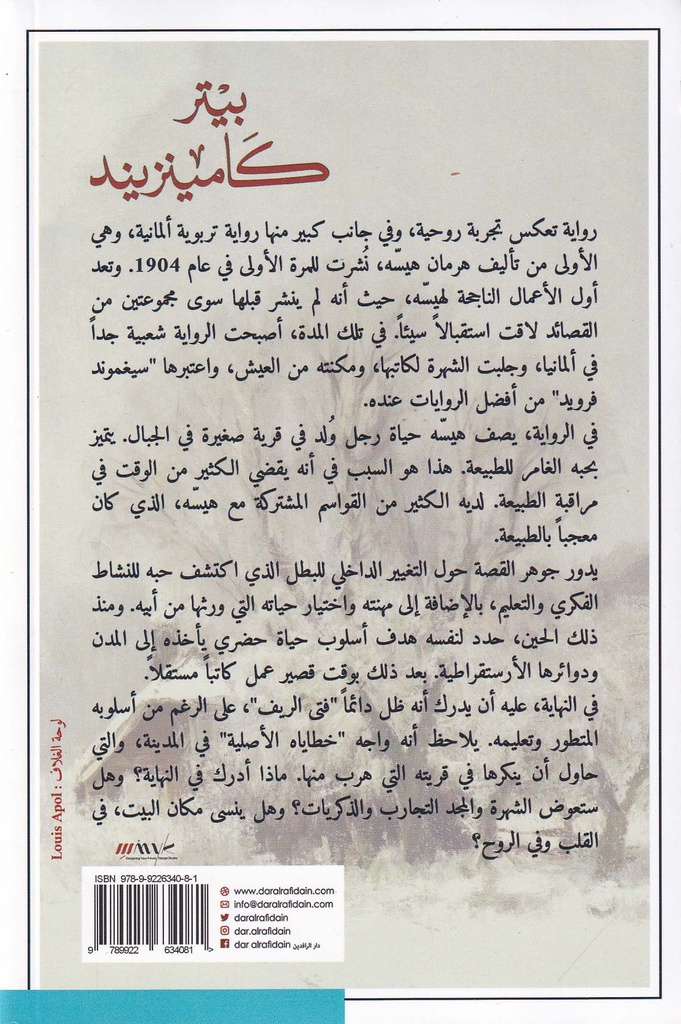 بيْتر
كَامينزيند
رواية تعكس تجربة روحية، وفي جانب كبير منها رواية تربوية ألمانية، وهي
الأولى من تأليف هرمان هيسّه، نُشرت للمرة الأولى في عام 1904. وتعد
أول الأعمال الناجحة لهيسّه، حيث أنه لم ينشر قبلها سوى مجموعتين من
القصائد لاقت استقبالاً سيئاً. في تلك المدة، أصبحت الرواية شعبية جداً
في ألمانيا، وجلبت الشهرة لكاتبها، ومكنته من العيش، واعتبرها "سيغموند
فرويد" من أفضل الروايات عنده.
في الرواية، يصف هيسّه حياة رجل وُلد في قرية صغيرة في الجبال. يتميز
بحبه الغامر للطبيعة. هذا هو السبب في أنه يقضي الكثير من الوقت في
مراقبة الطبيعة. لديه الكثير من القواسم المشتركة مع هيسّه، الذي كان
معجباً بالطبيعة.
يدور جوهر القصة حول التغيير الداخلي للبطل الذي اكتشف حبه للنشاط
الفكري والتعليم، بالإضافة إلى مهنته واختيار حياته التي ورثها من أبيه. ومنذ
ذلك الحين، حدد لنفسه هدف أسلوب حياة حضري يأخذه إلى المدن
ودوائرها الأرستقراطية. بعد ذلك بوقت قصير عمل كاتباً مستقلاً.
في النهاية، عليه أن يدرك أنه ظل دائماً "فتى الريف"، على الرغم من أسلوبه
المتطور وتعليمه. يلاحظ أنه واجه "خطاياه الأصلية" في المدينة، والتي
حاول أن ينكرها في قريته التي هرب منها. ماذا أدرك في النهاية؟ وهل
ستعوض الشهرة والمجد التجارب والذكريات؟ وهل ينسى مكان البيت، في
القلب وفي الروح؟
لوحة الغلاف : Louis Apol
ISBN 978-9-9226340-8-1
9 789922 634081 >
www.daralrafidain.com
info@daralrafidain.com
daralrafidain
dar.alrafidain
dar alrafidain دار الرافدين